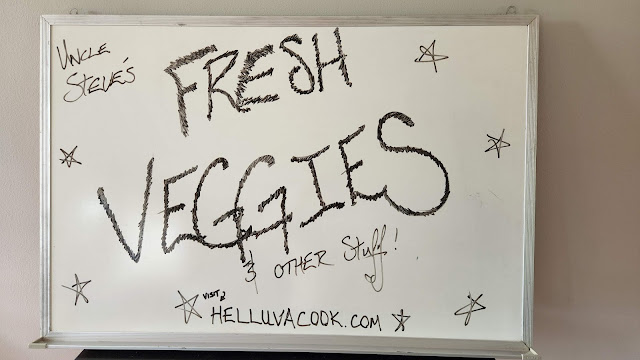 UNCLE
STEVE'S
FRESH
VEGGIES
& OTHER Stuff!
VISIT
HELLUVACOOK.COM